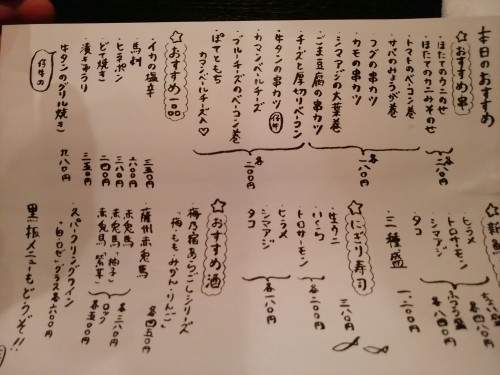 本日のおすすめ
☆おすすめ串
・ほたてのカニのせ
・ほたてのカニみそのせ
各二八〇円
・トマトのベーコン巻
・サバのみょうが巻
・フグの串カツ
・カモの串カツ
・シマアジの大葉巻
・ごま豆腐の串カツ
各一八〇円
・チーズと厚切りベーコン
・牛タンの串カツ
・カマンベールチーズ
・ブルーチーズのベーコン巻
・ぽてともち
カマンベールチーズ入♡
各二〇〇円
☆おすすめ一品
・イカの塩辛 三五〇円
・馬刺 六〇〇円
・ヒラポン 三八〇円
・どて焼き 二四〇円
・漬きゅうり 三五〇円
・牛タンのグリル焼き 九八〇円
・ヒラメ
・トロサーモン
・シマアジ
・タコ
ふつう盛 各八四〇円
・三種盛 一、二〇〇円
☆にぎり寿司
・生ウニ 三八〇円
・いくら
・トロサーモン
各二〇〇円
・ヒラメ
・シマアジ
・タコ
各一八〇円
☆おすすめ酒
・梅乃宿あらごしシリーズ
「梅・もも・みかん・りんご」
各四五〇円
・薩州赤兎馬
・赤兎馬
・赤兎馬（柚子）
・赤兎馬（紫芋）
各三八〇円
ロック 各五〇〇円
・スパークリングワイン
白・ロゼ グラス各六〇〇円
黒板メニューもどうぞ!!